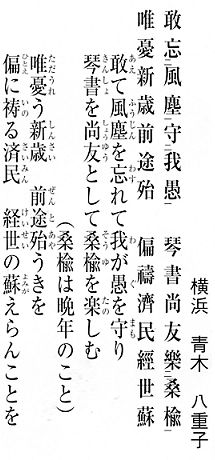 横浜 青木 八重子
敢忘㆓風塵㆒守㆓我愚㆒ 琴書尚友樂㆓桑楡㆒
唯憂新歳前途殆 偏禱濟民經世蘇
敢て風塵を忘れて我が愚を守り
琴書を尚友として桑楡を楽しむ
(桑楡は晩年のこと)
唯憂う新歳 前途殆うきを
偏に祷る済民 経世の蘇えらんことを